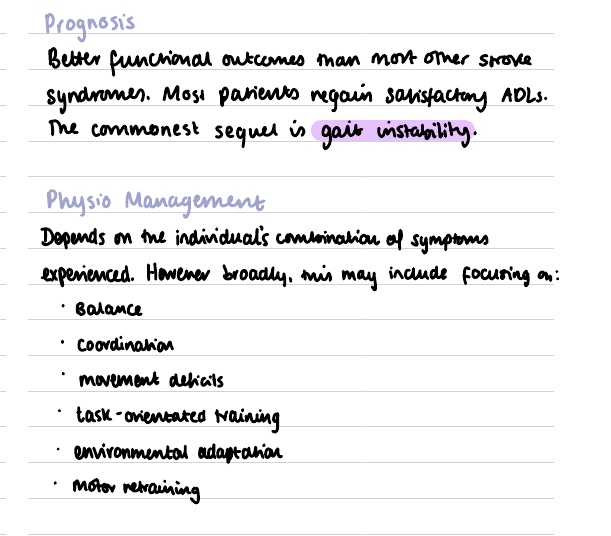 Prognosis
Better functional outcomes than most other stroke
syndromes. Most patients regain satisfactory ADLs.
The commonest sequel is gait instability.
Physio Management
Depends on the individual's combination of symptoms
experienced. However broadly, this may include focusing on:
· Balance
· Coordination
· movement deficits
· task-orientated training
· environmental adaptation
· Motor retraining